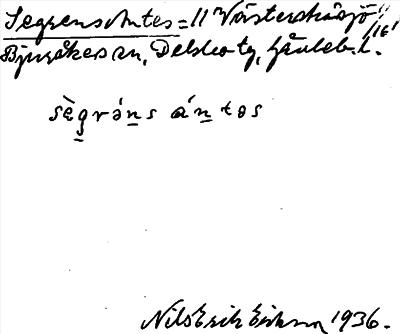 Segrens Antes = 11 Västerstråsjö 11/16
Bjuråkers sn, Delsbo tg, Gävleb. l.
sègrəns ántəs
Nils Erik Eriksson 1936.